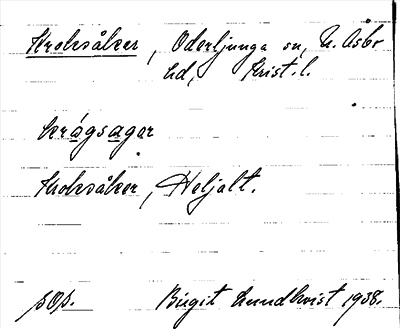 Kroksåker, Oderljunga sn, N. Åsbo
hd, Krist. l.
krågsagar
Kroksåker, Heljalt.
sOp. Birgit Lundkvist 1938.